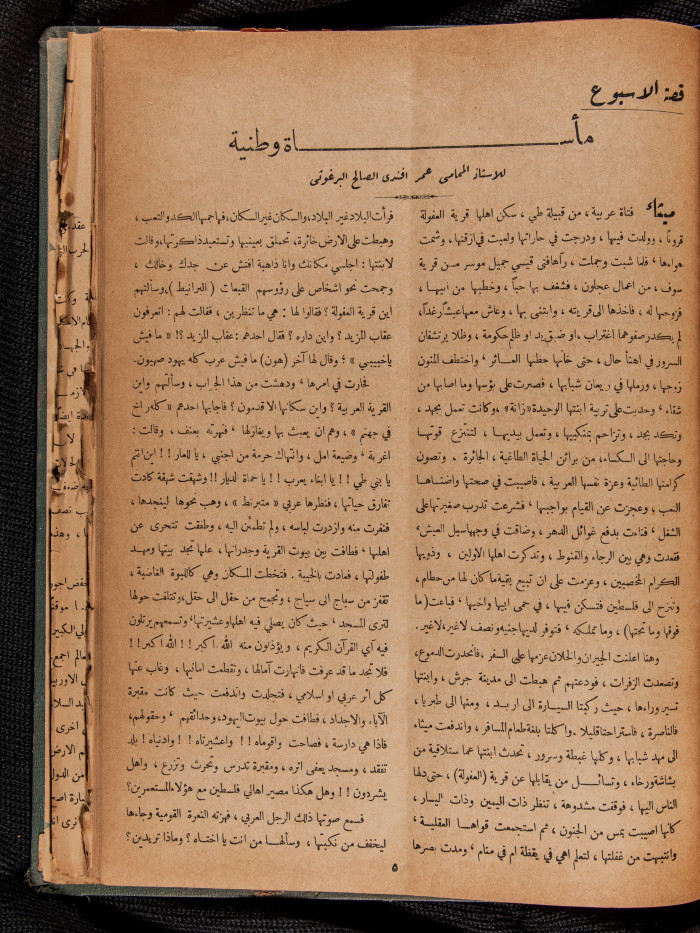 قصة الاسبوع
مأســـــاة وطنية
للاستاذ المحامى عمر افندى الصالح البرغوثى
ميثاء فتاة عربية ، من قبيلة طي ، سكن اهلها قرية العفولة
قرونا ، وولدت فيها ، ودرجت في حاراتها ولعبت في ازقتها ، وشمت
هواءها ، فلما شبت وجملت ، رآهافتى قيسي جميل موسر من قرية
سوف ، من اعمال عجلون ، فشغف بها حباً ، وخطبها من ابيها ،
فزوجها له ، فاخذها الى قريته ، وابتنى بها ، وعاش معهاعيشاً رغداً،
لم يكدر صفوهما اغتراب ،او ضيق يد او ظلم حكومة ، وظلا يرتشفان
السرور في اهنأ حال ، حتى خانها حظها العاثر ، واختطف المنون
زوجها ، ورملها في ريعان شبابها ، فصبرت على بؤسها وما اصابها من
شقاء ، وحدبت على تربية ابنتها الوحيدة «زانة» ،وكانت تعمل بجهد ،
وتكد بجد ، وتزاحم بمنكبيها ، وتعمل بيديها ، لتنتزع قوتها
وحاجتها الى الكساء ، من براثن الحياة الطاغية ، الجائرة . وتصون
كرامتها الطائية وعزة نفسها العربية ، فاصيبت في صحتها واضناها
التعب ، وعجزت عن القيام بواجبها ، فشرعت تدرب صغيرتها على
الشغل ، فناءت بدفع غوائل الدهر ، وضاقت في وجهها سبل العيش ،
فقعدت وهي بين الرجاء والقنوط ، وتذكرت اهلها الاولين ، وذويها
الكرام المخصبين ، وعزمت على ان تبيع بقية ما كان لها من حطام ،
وتنزح الى فلسطين فتسكن فيها ، في حمى ابيها واخيها ، فباعت (ما
فوقها وما تحتها) ، وما تملكه ، فتوفر لديها جنيه ونصف لاغير ، لاغير.
وهنا اعلنت الجيران والخلان عزمها على السفر ، فانحدرت الدموع،
وتصعدت الزفرات ، فودعتهم ثم هبطت الى مدينة جرش ، وابنتها
تسير وراءها ، حيث ركبتا السيارة الى اربد ، ومنها الى طبريا ،
فالناصرة ، فاستراحتاقليلا .واكلتا بلغة طعام المسافر ، واندفعت ميثاء
الى مهد شبابها ، وكلها غبطة وسرور ، تحدث ابنتها عما ستلاقية من
بشاشة ورخاء ، وتسائل من يقابلها عن قرية (العفولة) ، حتى دلها
الناس اليها ، فوقفت مشدوهة ، تنظر ذات اليمين وذات اليسار ،
كانها اصيبت بمس من الجنون ، ثم استجمعت قواها العقلية ،
وانتبهت من غفلتها ، لتعلم اهي في يقظة ام في منام ، ومدت بصرها
قرأت البلاد غير البلاد ، والسكان غير السكان ، فهاجمها الكد والتعب ،
وهبطت على الارض خائرة ، تحملق بعينيها وتستعيد ذاكرتها ، وقالت
لابنتها : اجلسي مكانك وانا ذاهبة افتش عن جدك وخالك ،
وجمحت نحو اشخاص على رؤوسهم القبعات (البرانيط) ، وسألتهم
اين قرية العفولة ؟ فقالوا لها : هي ما تنظرين ، فقالت لهم : اتعرفون
عقاب المزيد ؟ واين داره ؟ فقال احدهم :عقاب المزيد ؟! « ما فيش
ياخبيبي » ؛ وقال لها آخر (هون) ما فيش عرب كله يهود صهيون.
فحارت في امرها ، ودهشت من هذا الجراب ، وسألتهم واين
القرية العربية ؟ واين سكانها الاقدمون ؟ فاجابها احدهم « كله راخ
في جهنم » ، وهم ان يعبث بها ويغازلها ، فنهرته بعنف ، وقالت :
اغربة ، وضيعة امل ، وانتهاك حرمة من اجنبي ، يا للعار !! اين انتم
يا بني طي !! يا ابناء يعرب !! يا حماة الديار !! وشهقت شهقة كادت
تفارق حياتها ، فنظرها عربي « متبرنط » ، وهب نحوها لينجدها ،
فنفرت منه وازدرت لباسه ، ولم تطمئن اليه ، وطفقت تتحرى عن
اهلها ، فطافت بين بيوت القرية وجدرانها ، علها تجد بيتها ومهد
طفولتها ، فعادت بالخيبة . فتخطت المسكان وهي كاللبوة الغاضبة ،
تقفز من سياج الى سياج ، وتجمح من حقل الى حقل ،وتتلفت حولها
لترى المسجد ، حيث كان يصلي فيه اهلهاوعشيرتها، وتسمعهم يرتلون
فيه آي القرآن الكريم ، ويؤذنون منه الله اكبر !! الله اكبر !!
فلا تجد ما قد عرفت فانهارت آمالها ، وتقطعت امانيها ، وغاب عنها
كل اثر عربي او اسلامي ، فتجلدت واندفعت حيث كانت مقبرة
الآباء والاجداد ، فطافت حول بيوت اليهود،وحدائقهم ، وحقولهم،
فاذا هي دارسة ، فصاحت واقوماه !! واعشيرتاه !! وادنياه ! بلد
تفقد ، ومسجد يعفى اثره ، ومقبرة تدرس وتحرث وتزرع ، واهل
يشردون !! وهل هكذا مصير اهالي فلسطين مع هؤلاء المستعمرين؟
فسمع صوتها ذلك الرجل العربي ، فهزته النعرة القومية وجاءها
ليخفف من نكبتها ، وسألها من انت يا اختاه ؟ وماذا تريدين ؟
٥